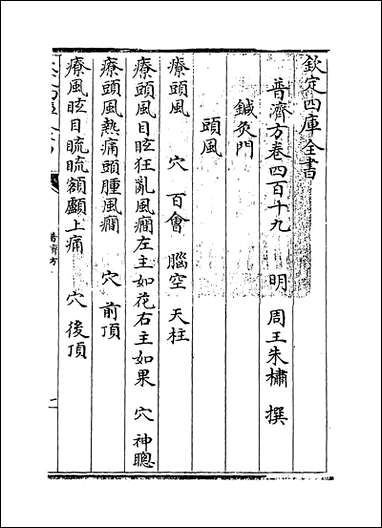 欽定四庫全書
普濟方卷四百十九 明 周王朱橚 撰
鍼灸門
頭風
療頭風 穴 百會 腦空 天柱
療頭風目眩狂亂風癇左主如花右主如果 穴 神聰
療頭風熱痛頭腫風癇 穴 前頂
療風眩目䀮䀮額顱上痛 穴 後頂
普濟方